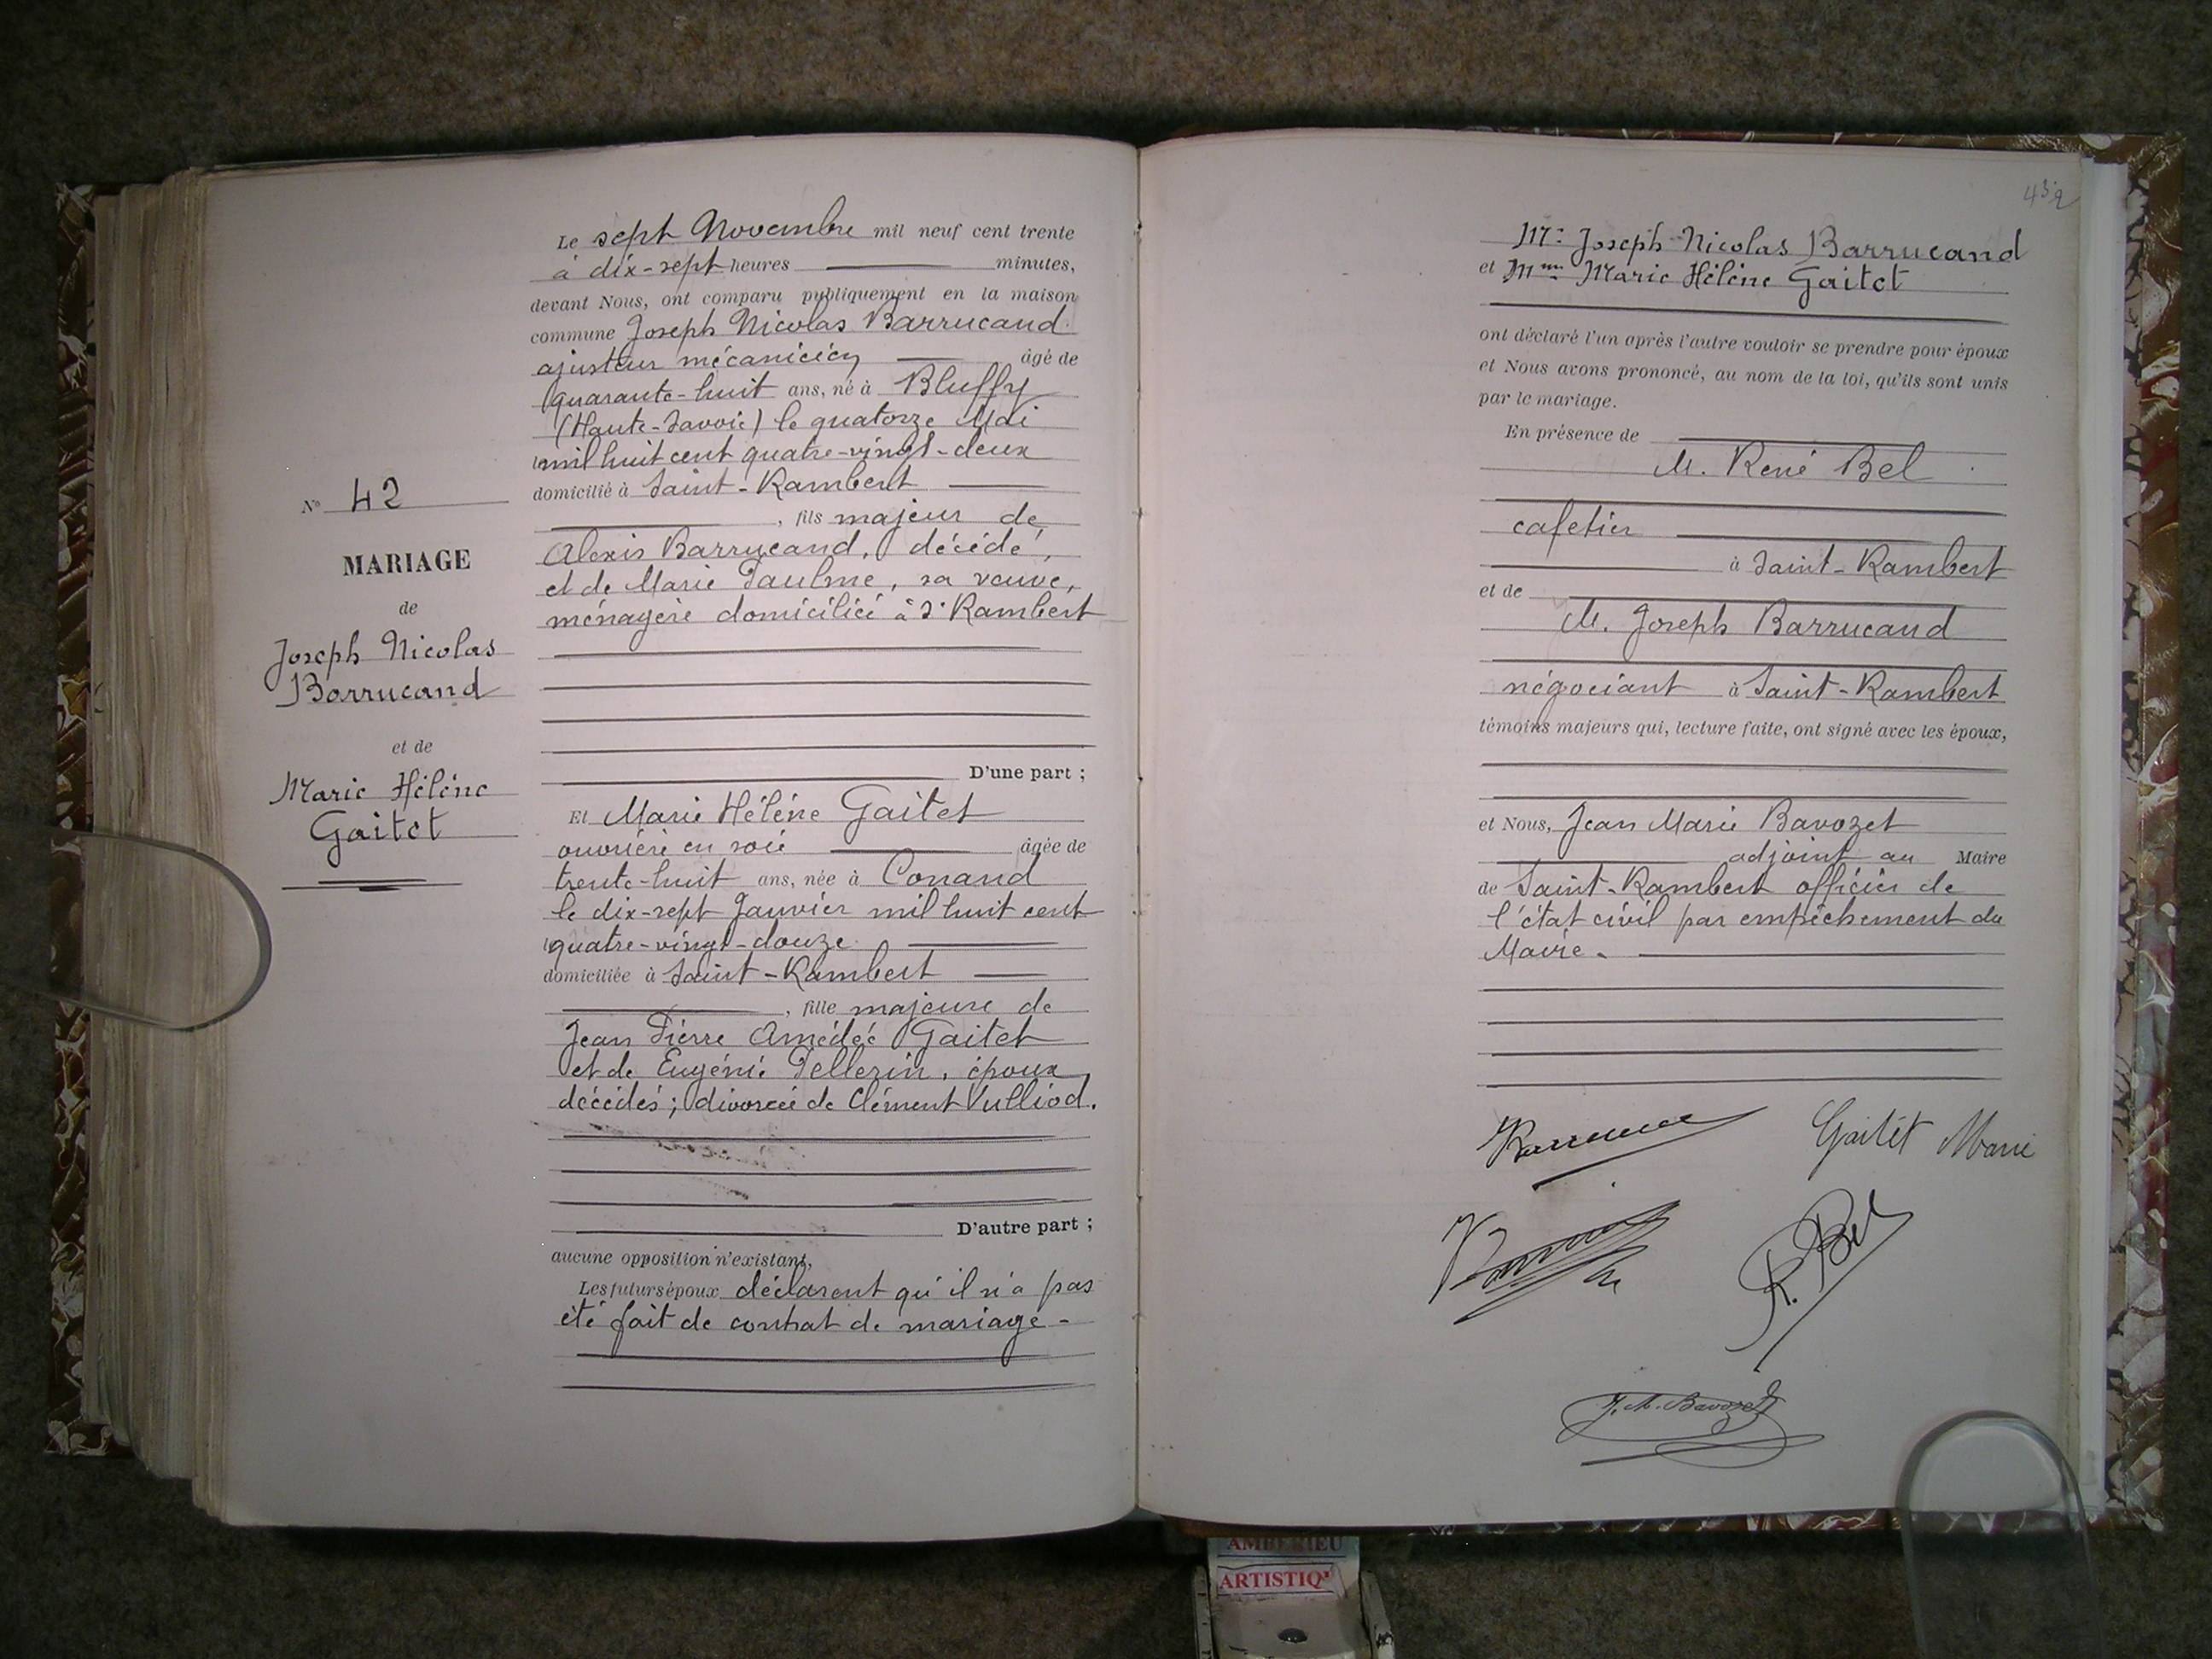 N° 42
MARIAGE
de
Joseph Nicolas
Barrucand
et de
Marie Hélène
Gaitet
Le sept Novembre mil neuf cent trente
à dix-sept heures minutes,
devant Nous, ont comparu publiquement en la maison
commune Joseph Nicolas Barrucand
ajusteur mécanicien âgé de
quarante-huit ans, né à Bluffy
(Haute-Savoie) le quatorze Mai
mil huit cent quatre-vingt-deux
domicilié à Saint-Rambert
, fils majeur de
Alexis Barrucand, décédé,
et de Marie Paulme, sa veuve,
ménagère domiciliée à St Rambert
D'une part ;
Et Marie Hélène Gaitet
ouvrière en soie âgée de
trente-huit ans, née à Conand
le dix-sept Janvier mil huit cent
quatre-vingt-douze
domiciliée à Saint-Rambert
, fille majeure de
Jean Pierre Amédée Gaitet
et de Eugénie Pellerin, époux
décédés ; divorcée de Clément Vulliod.
D'autre part ;
aucune opposition n'existant,
Les futurs époux déclarent qu'il n'a pas
été fait de contrat de mariage -
432
Mr Joseph Nicolas Barrucand
et Mme Marie Hélène Gaitet
ont déclaré l'un après l'autre vouloir se prendre pour époux
et Nous avons prononcé, au nom de la loi, qu'ils sont unis
par le mariage.
En présence de
M. René Bel
cafetier
à Saint-Rambert
et de
M. Joseph Barrucand
négociant à Saint-Rambert
témoins majeurs qui, lecture faite, ont signé avec les époux,
et Nous, Jean Marie Bavozet
adjoint au Maire
de Saint-Rambert officier de
l'état civil par empêchement du
Maire.
Gaitet Marie
R. Bel
J. M. Bavozet
AMBERIEU
ARTISTIQ